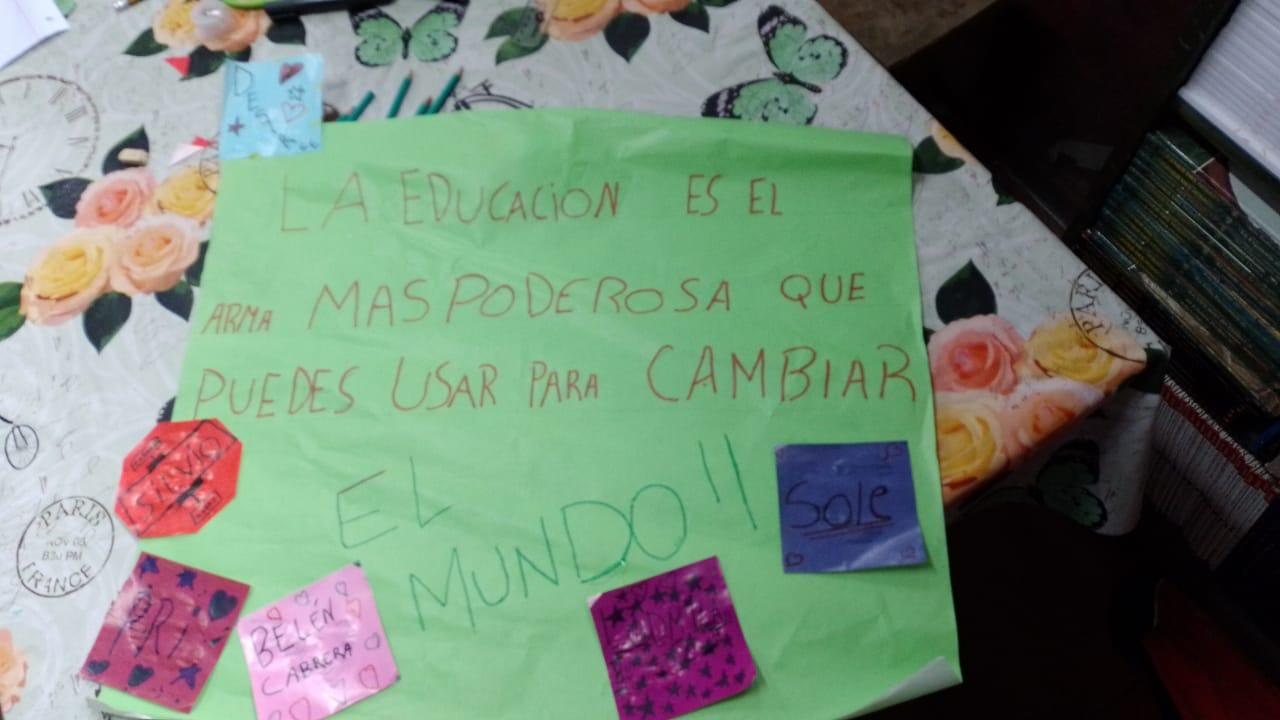 LA EDUCACION ES EL
ARMA MAS PODEROSA QUE
PUEDES USAR PARA CAMBIAR
EL
MUNDO!!
SILVIO
Sole
ARI
BELÉN
CARRERA
PARIS
NOV 08,
830 PM
FRANCE
PARI